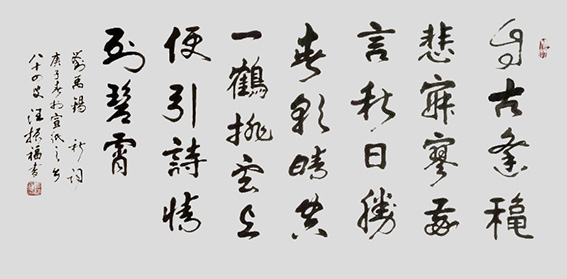 自古逢穐
悲寂寥我
言秋日勝
春朝晴空
一鶴排雲上
便引詩情
到碧霄
劉禹錫 秋詞
庚子春於宣紙之乡
八十四叟汪振福书